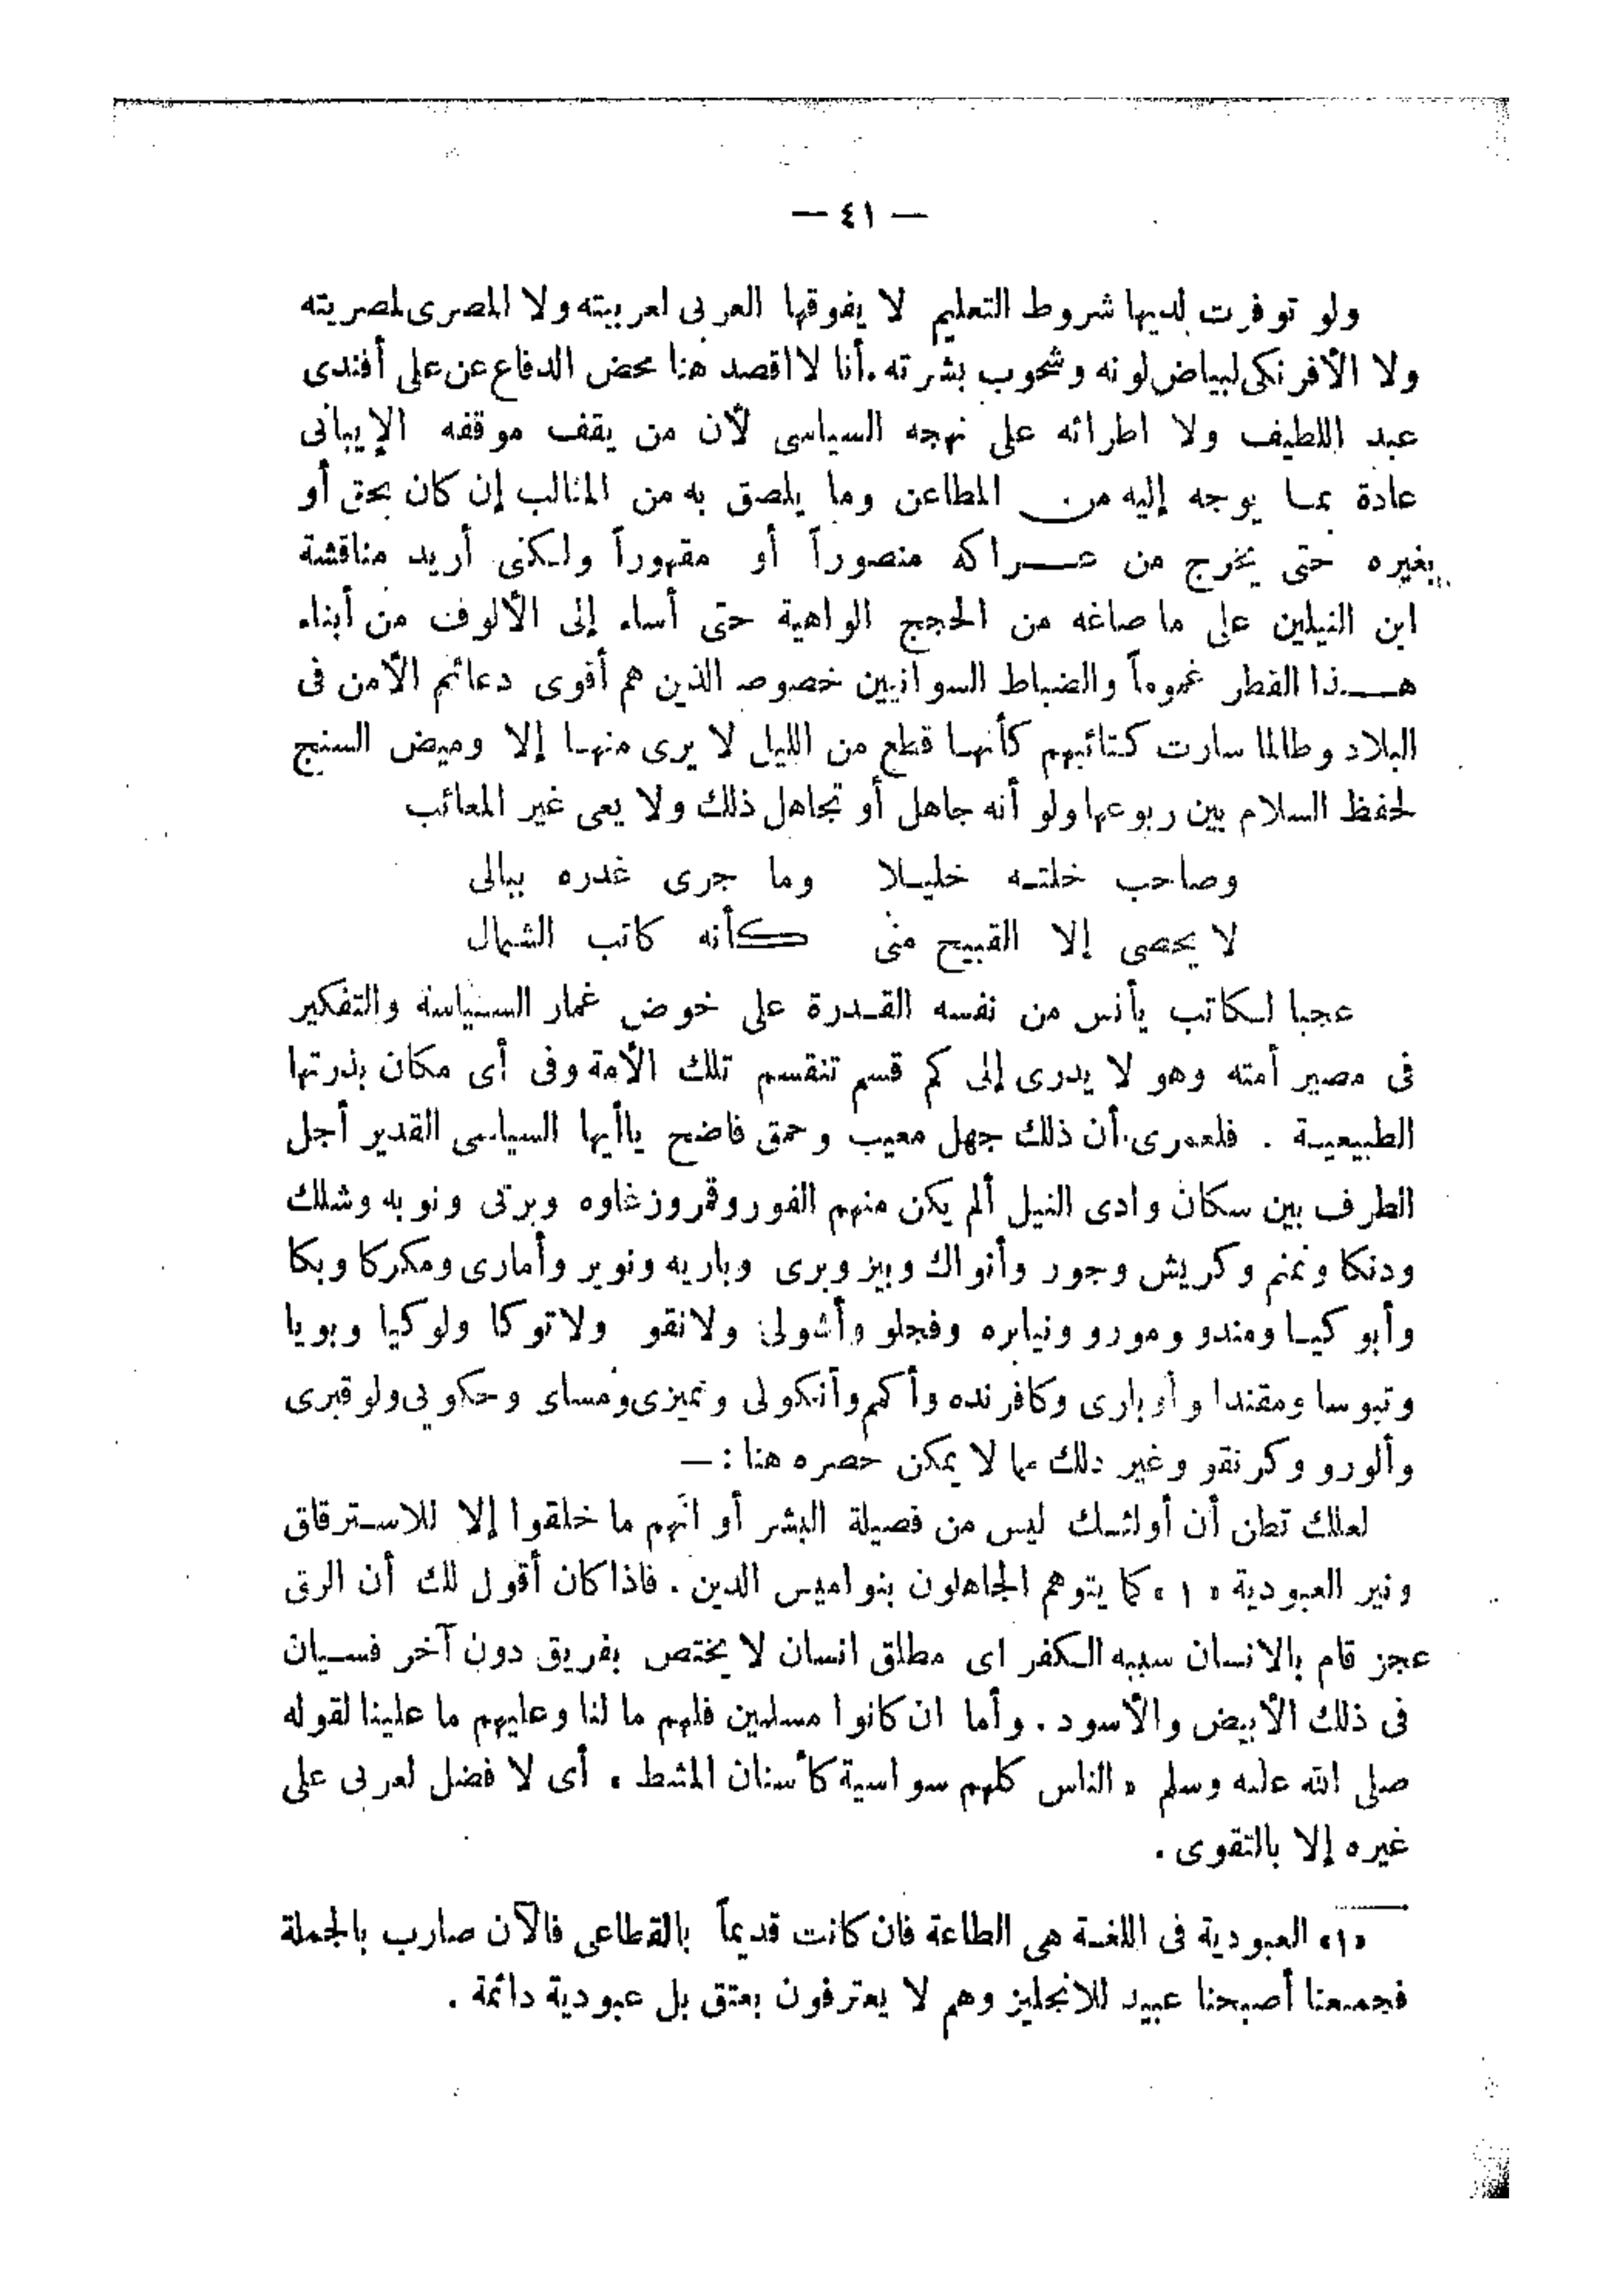 — ٤١ —
ولو توفرت لديها شروط التعليم لا يفوقها العربى لعربيته ولا المصرى لمصريته
ولا الأفرنكى لبياض لونه وشحوب بشرته . أنا لا اقصد هنا محض الدفاع عن على أفندى
عبد اللطيف ولا اطرائه على نهجه السياسى لأن من يقف موقفه الإيبانى
عادة بما يوجه إليه من المطاعن وما يلصق به من المثالب إن كان بحق أو
بغيره حتى يخرج من عراكه منصوراً أو مقهوراً ولكنى أريد مناقشة
ابن النيلين على ما صاغه من الحجج الواهية حتى أساء إلى الألوف من أبناء
هذا القطر عموماً والضباط السوانيين خصوصه الذين هم أقوى دعائم الأمن فى
البلاد وطالما سارت كتائبهم كأنها قطع من الليل لا يرى منها إلا وميض السنج
لحفظ السلام بين ربوعها ولو أنه جاهل أو تجاهل ذلك ولا يعى غير المعائب
وصاحب خلته خليلا وما جرى غدره ببالى
لا يحصى إلا القبيح منى كأنه كاتب الشمال
عجبا لكاتب يأنس من نفسه القدرة على خوض غمار السياسة والتفكير
فى مصير أمته وهو لا يدرى إلى كم قسم تنقسم تلك الأمة وفى أى مكان بذرتها
الطبيعية . فلعمرى أن ذلك جهل معيب وحمق فاضح ياأيها السياسى القدير أجل
الطرف بين سكان وادى النيل ألم يكن منهم الفور وقمروزغاوه وبرتى ونوبه وشلك
ودنكا ونمنم وكريش وجور وأنواك وبيز وبرى وباريه ونوير وأمارى ومكركا وبكا
وأبو كيا ومندو ومورو ونيابره وفجلو وأشولى ولانقو ولاتوكا ولوكيا وبويا
وتبوسا ومقندا وأوبارى وكافرنده وأكم وآنكولى ونميزى ومساى وحكوبى ولوقبرى
وألورو وكرنقو وغير دلك مما لا يمكن حصره هنا : —
لعلك تظن أن أولئك ليس من فصيلة البشر أو انهم ما خلقوا إلا للاسترقاق
ونير العبودية « ١ » كما يتوهم الجاهلون بنواميس الدين . فاذا كان أقول لك أن الرق
عجز قام بالانسان سببه الكفر اى مطلق انسان لا يختص بفريق دون آخر فسيان
فى ذلك الأبيض والأسود . وأما ان كانوا مسلمين فلهم ما لنا وعليهم ما علينا لقوله
صلى الله عليه وسلم « الناس كلهم سواسية كأسنان المشط » أى لا فضل لعربى على
غيره إلا بالتقوى .
«١» العبودية فى اللغة هى الطاعة فان كانت قديماً بالقطاعى فالآن صارب بالجملة
فجميعنا أصبحنا عبيد للانجليز وهم لا يعترفون بعتق بل عبودية دائمة .